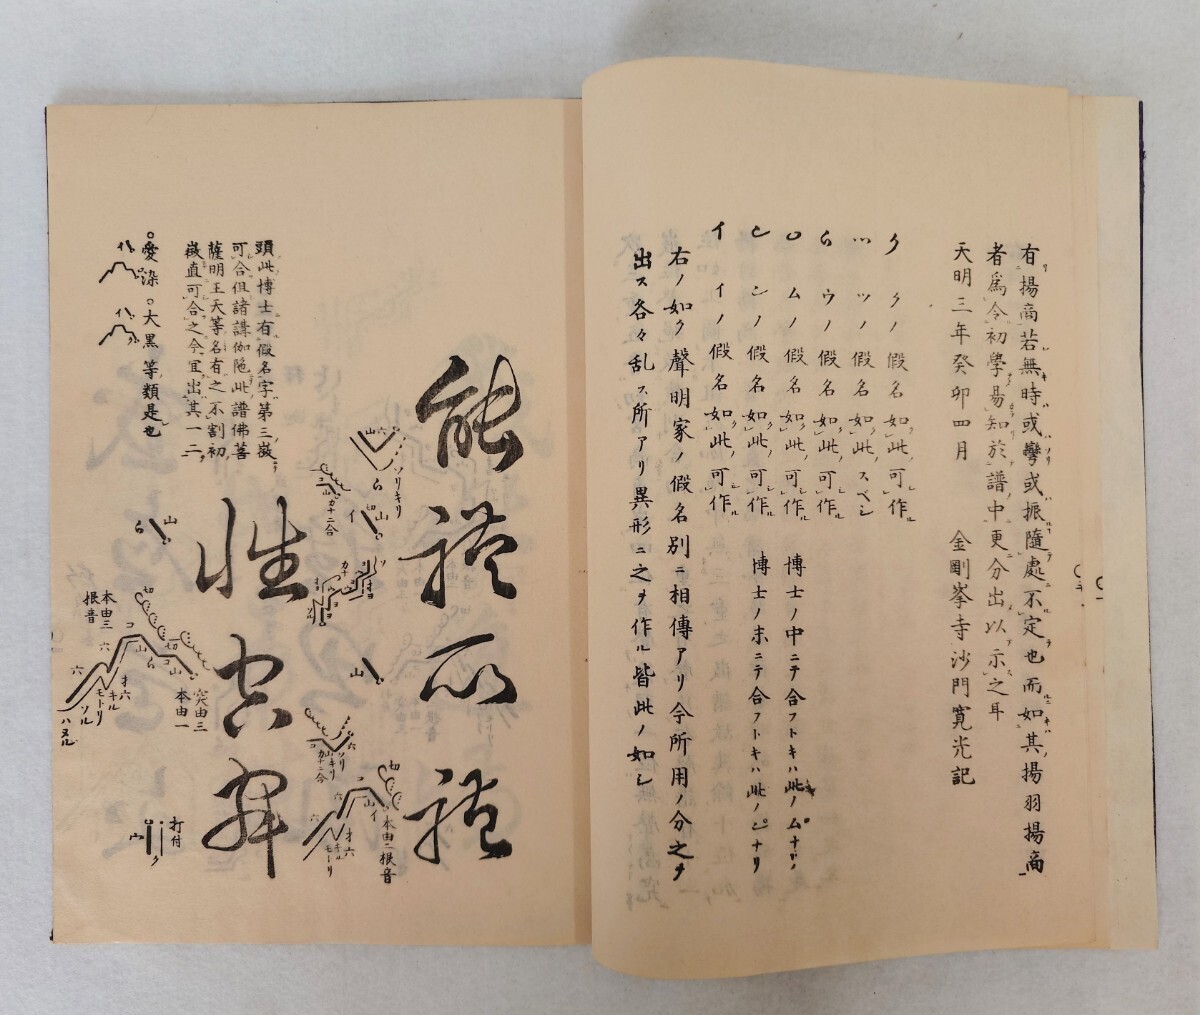 有揚商若無時或彎或振隨處不定也而如其揚羽揚商
者爲令初學易知於譜中更分出以示之耳
天明三年癸卯四月　金剛峯寺沙門寛光記
ク　クノ假名如此可作
ツノ假名如此スベシ
ウノ假名如此可作
ムノ假名如此可作　博士ノ中ニテ合フトキハ此ノ
ンノ假名如此可作　博士ノ末ニテ合フトキハ此ノ
イ　イノ假名如此可作
右ノ如ク聲明家ノ假名別ニ相傳アリ今所用ノ分之ヲ
出ス各々乱ス所アリ異形ニ之ヲ作ル皆此ノ如シ
能禮所禮
ソリキリ
山六
カナ二合
イ
切
山
切
本由二根音
山イ
六
オ六
キル
モトリ
性空寂
山
切
本由三
根音
コ
六
山
オ六
モトリ
キル
ソル
ハヌル
突由三
本由一
打付
頭此博士有假名字第三嶶
可合但諸讃伽陀此譜佛菩
薩明王天等名有之不割初
嶶直可合之今宜出其一二
愛染。大黒等類是也